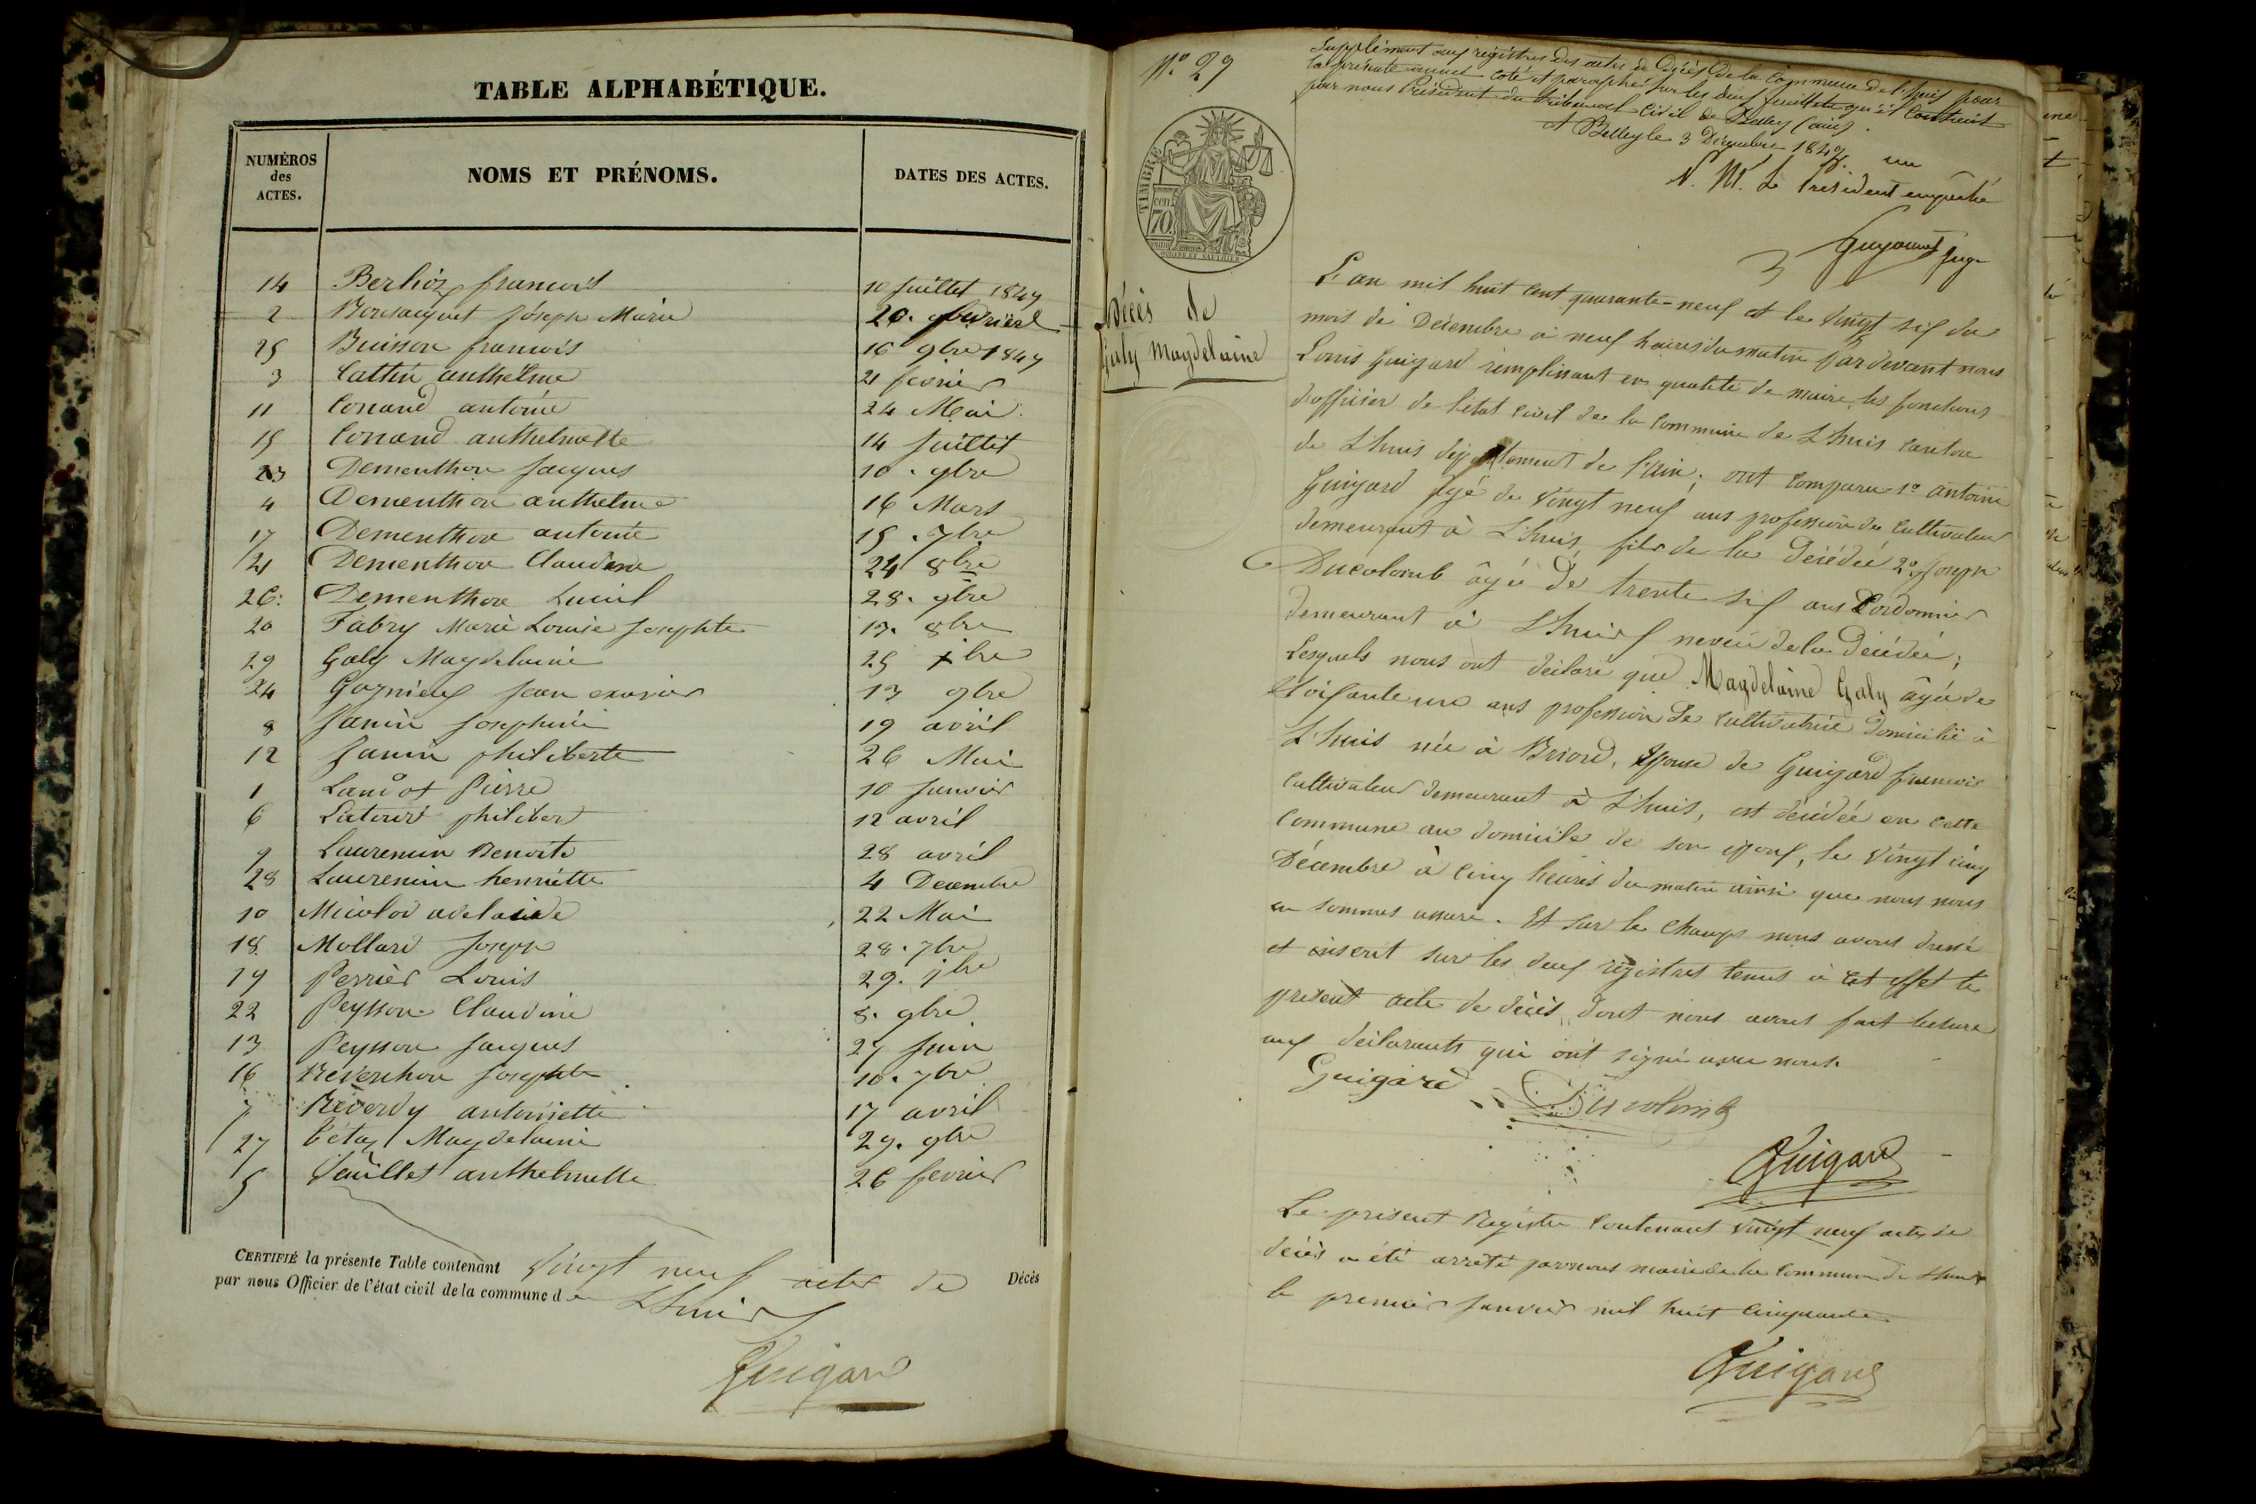 TABLE ALPHABÉTIQUE.
NUMÉROS des ACTES. NOMS ET PRÉNOMS. DATES DES ACTES.
14 Berlioz francois 10 Juillet 1849
2 Bonsaquet Joseph Marie 20.
25 Buisson francois 16 9bre 1849
3 Cattin anthelme 21 fevrier
11 Conand antoine 24 Mai
15 Conand anthelmette 14 Juillet
23 Dementhon Jacques 10. 9bre
4 Dementhon anthelme 16 Mars
17 Dementhon antoine 15. 7bre
21 Dementhon Claudine 24 8bre
26. Dementhon Lucie 28. 9bre
20 Fabry Marie Louise Josephte 13. 8bre
29 Galy Magdelaine 25 xbre
24 Gagnieux Jean 13 9bre
8 Janin Josephine 19 avril
12 Janin philiberte 26 Mai
1 Landot Pierre 10 Janvier
6 Latour philiber 12 avril
9 Laurencin Benoite 28 avril
28 Laurencin henriette 4 Decembre
10 Micolod adelaide 22 Mai
18 Mollard Joseph 28. 7bre
19 Perrier Louis 29. 7bre
22 Peysson Claudine 8. 9bre
13 Peysson Jacques 27 Juin
16 Revenchon Josephte 10. 7bre
7 Reverdy antoinette 17 avril
27 Magdelaine 29. 9bre
5 anthelmette 26 fevrier
CERTIFIÉ la présente Table contenant Vingt neuf actes de Décès
par nous Officier de l'état civil de la commune de Lhuis
Guigard
N.º 29
Supplément aux registres des actes de Décès de la Commune de Lhuis pour
la présente année coté et paraphé sur les deux feuillets qu'il contient
par nous Président du tribunal Civil de Belley (ain).
A Belley le 3 Décembre 1849.
P. M. Le Président empêché
Juge
TIMBRE
70.
Décès de
Galy Magdelaine
L'an mil huit cent quarante-neuf et le vingt six du
mois de Décembre à neuf heures du matin par devant nous
Louis Guigard remplissant en qualité de maire les fonctions
d'officier de l'état civil de la commune de Lhuis canton
de Lhuis département de l'ain; ont comparu 1º antoine
Guigard âgé de vingt neuf ans profession de cultivateur
demeurant à Lhuis, fils de la décédée 2º Joseph
Ducolomb âgé de trente six ans Cordonnier
demeurant à Lhuis neveu de la décédée;
Lesquels nous ont déclaré que Magdelaine Galy âgée de
soixante un ans profession de cultivatrice domicilié à
Lhuis née à Briord, Epouse de Guigard francois
cultivateur demeurant à Lhuis, est décédée en cette
commune au domicile de son epoux, le vingt cinq
Décembre à cinq heures du matin ainsi que nous nous
en sommes assuré. Et sur le champs nous avons dressé
et inscrit sur les deux régistres tenus à cet effet le
présent acte de décès, dont nous avons fait lecture
aux déclarants qui ont signé avec nous.
Guigard Ducolomb
Guigard
Le présent Régistre contenant vingt neuf actes de
décès a été arrêté par nous maire de la commune de Lhuis
le premier Janvier mil huit cinquante
Guigard